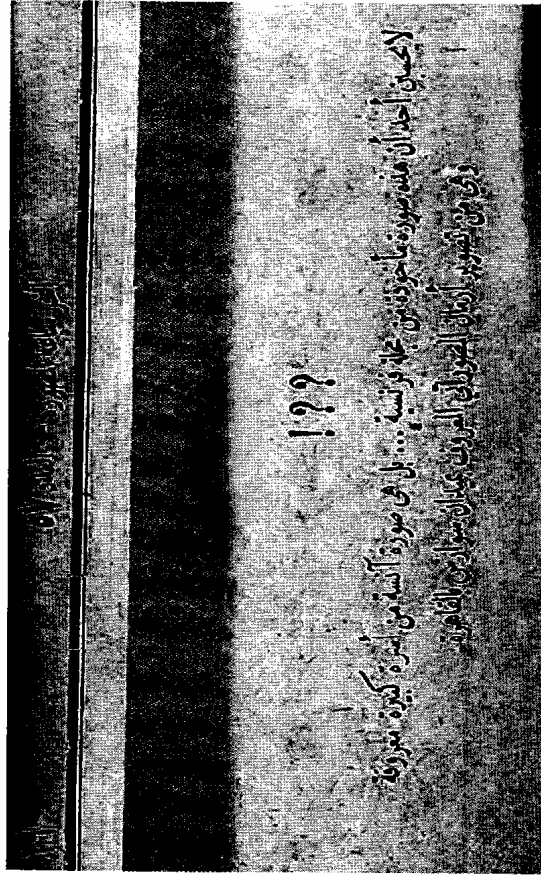 ؟؟؟!
لا يحسبن أحد أن هذه صورة مأخوذة من مجلة فرنسية ... بل هي صورة آنسة من أسرة كبيرة معروفة
وهي من تصوير أرمان المصوراتي المعروف بميدان سوارس بالقاهرة